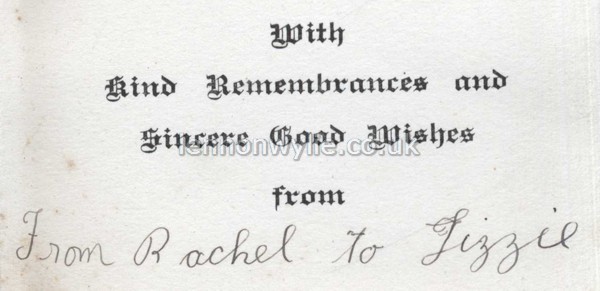 With
Kind Remembrances and
Sincere Good Wishes
lennonwylie.co.uk
from
From Rachel to Lizzie